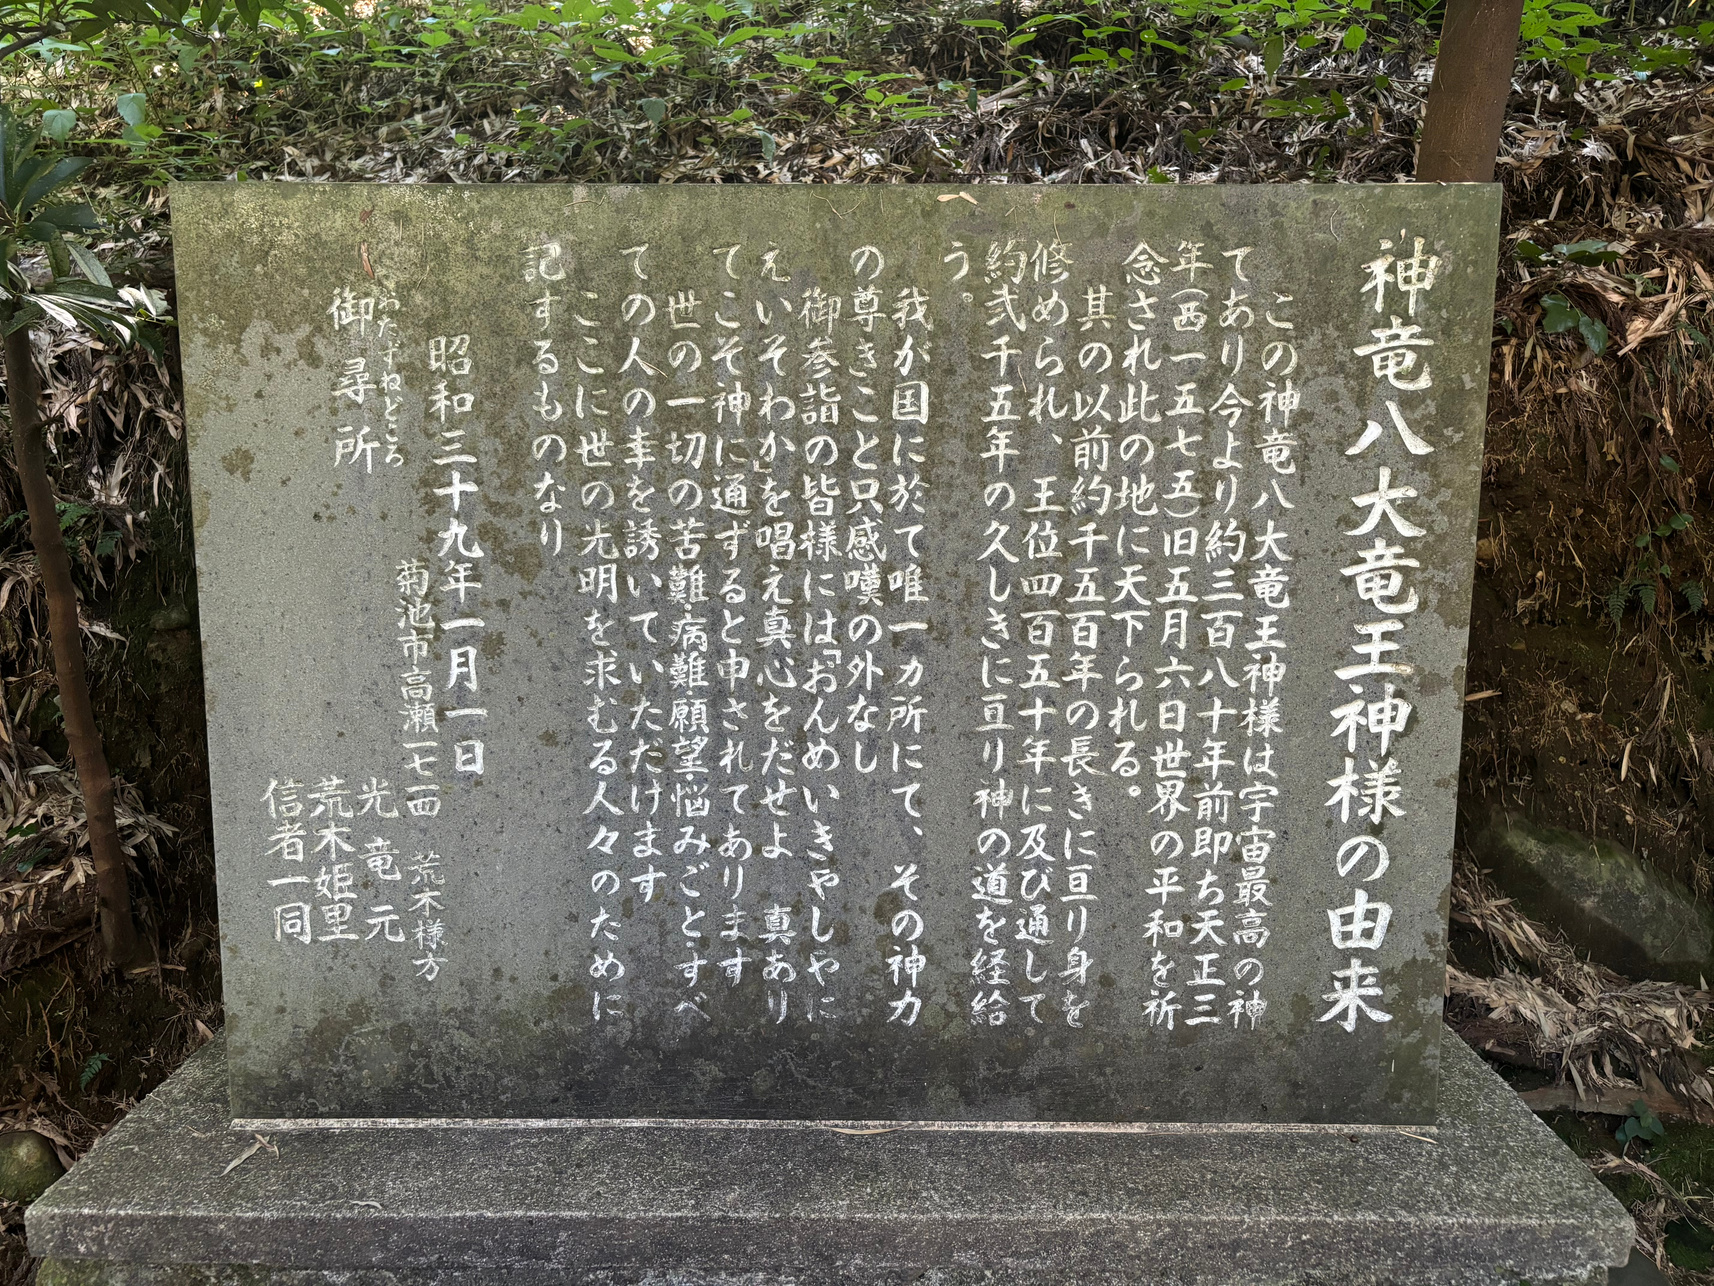 神竜八大竜王神様の由来
この神竜八大竜王神様は宇宙最高の神
てあり今より約三百八十年前即ち天正三
年(西一五七五)旧五月六日世界の平和を祈
念され此の地に天下られる。
其の以前約千五百年の長きに亘り身を
修められ、王位四百五十年に及び通して
約弐千五年の久しきに亘り神の道を経給
う。
我が国に於て唯一ヵ所にて、その神力
の尊きこと只感嘆の外なし
御参詣の皆様には「おんめいきやしやに
えいそわか」を唱え真心をだせよ 真あり
てこそ神に通ずると申されてあります
世の一切の苦難・病難・願望・悩みごと・すべ
ての人の幸を誘いていただけます
ここに世の光明を求むる人々のために
記するものなり
昭和三十九年一月一日
菊池市高瀬一七一四 荒木様方
わたずねどころ
御尋所
光竜元
荒木姫里
信者一同